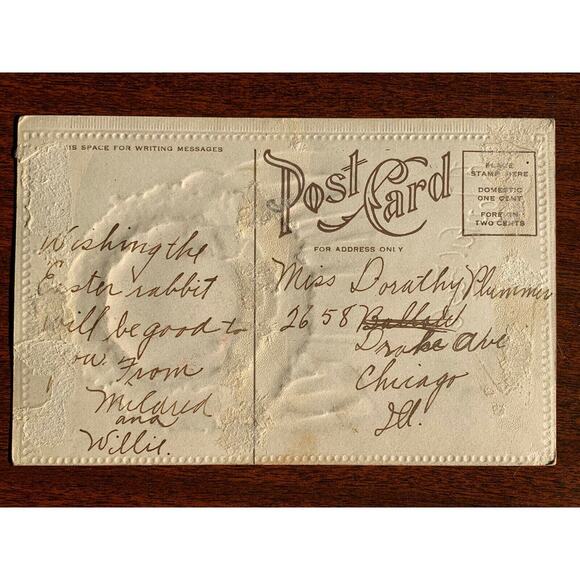 IS SPACE FOR WRITING MESSAGES
Post Card
FOR ADDRESS ONLY
PLACE
STAMP HERE
DOMESTIC
ONE CENT
FOREIGN
TWO CENTS
Wishing the
Easter rabbit
will be good to
ou From
Mildred
and
Willie.
Miss Dorathy Plummer
2658
Drake Ave
Chicago
Ill.